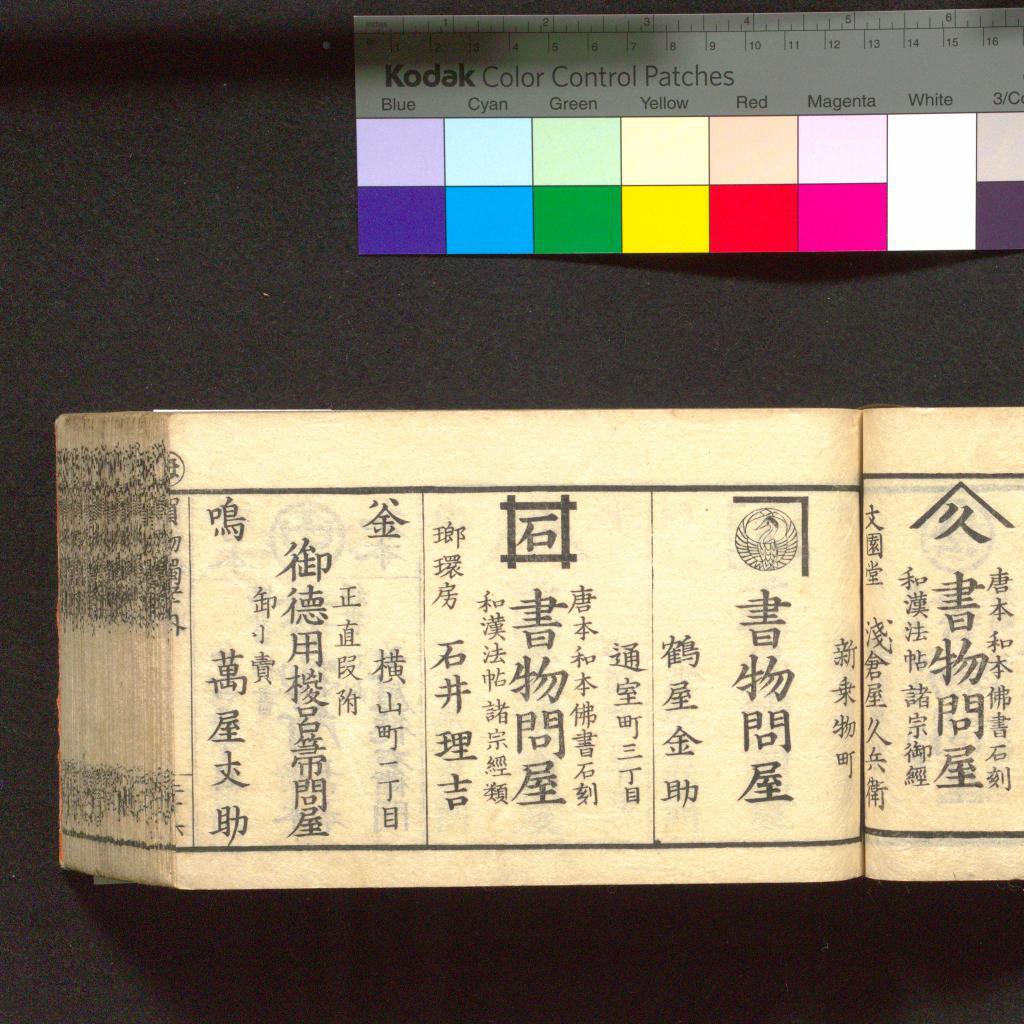 inches 1 2 3 4 5 6
1 2 3 4 5 6 7 8 9 10 11 12 13 14 15 16
Kodak Color Control Patches
Blue Cyan Green Yellow Red Magenta White 3/Co
唐本和本佛書石刻
久
書物問屋
和漢法帖諸宗御經
文園堂 淺倉屋久兵衛
新乗物町
書物問屋
鶴屋金助
通室町三丁目
唐本和本佛書石刻
石
書物問屋
和漢法帖諸宗經類
瑯環房 石井理吉
釜
横山町一丁目
正直叚附
御德用椶呂箒問屋
卸小賣
鳴
萬屋丈助